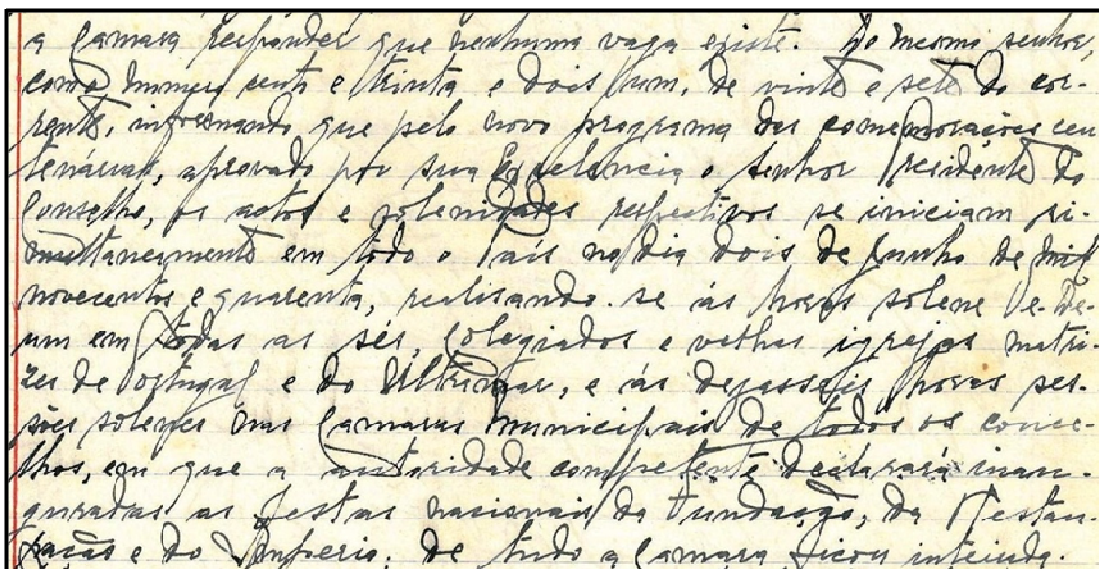 a Camara responder que nenhuma vaga existe. Do mesmo senhor,
com o numero cento e trinta e dois um, de vinte e sete do cor-
rente, informando que pelo novo programa das comemorações cen
tenárias, aprovado por sua Excelencia o Senhor Presidente do
Conselho, os actos e solenidades respectivos se iniciam si-
multaneamente em todo o País no dia dois de Junho de mil
novecentos e quarenta, realisando-se ás horas solene Te-De-
um em todas as sés, colegiadas e velhas igrejas matri-
zes de Portugal e do Ultramar, e ás dezasseis horas ses-
sões solenes nas Camaras Municipais de todos os conce-
lhos, em que a autoridade competente declarará inau-
guradas as festas nacionais da Fundação, da Restau-
ração e do Imperio; de tudo a Camara ficou inteirada.